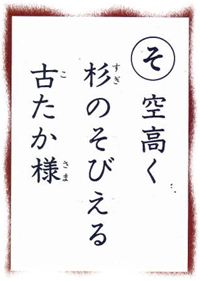 そ
空高く
杉のそびえる
古たか様
すぎ
こ
さま